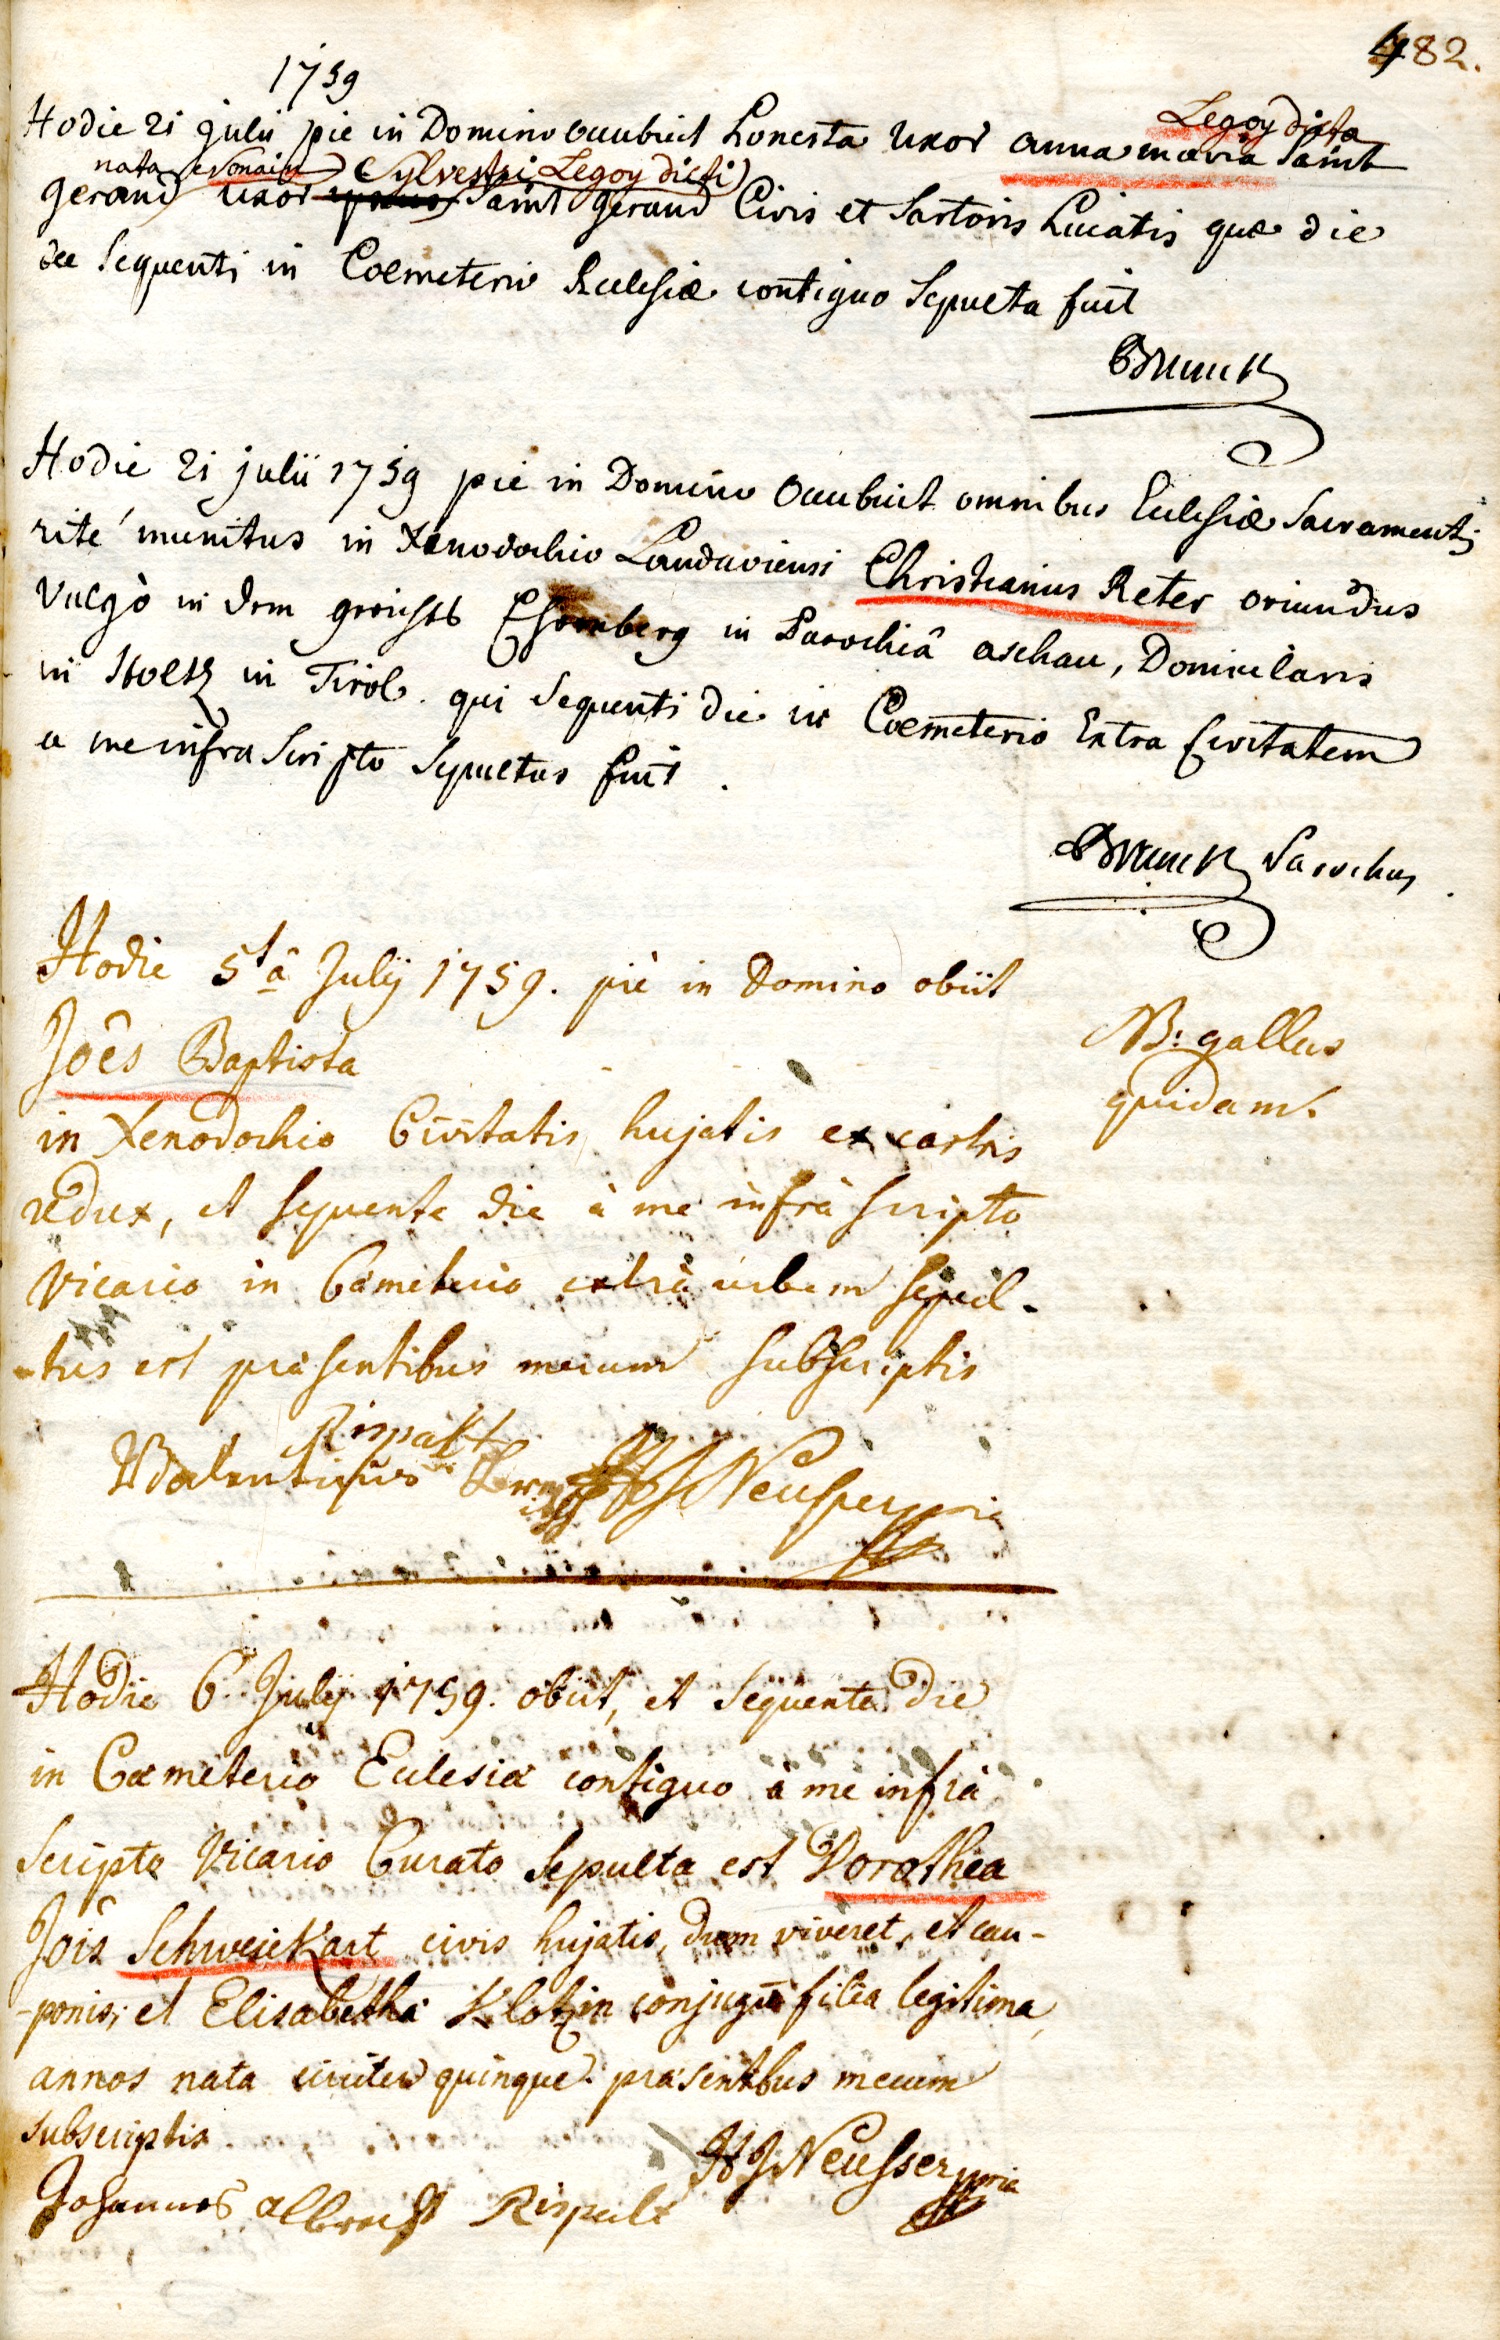 482.
1759
Legoy dicta
Hodie 21 julii pie in Domino occubuit honesta uxor anna maria Saint
nata Vonain Sylvestri Legoy dicti
gerand uxor Saint gerand Civis et Sartoris huiatis quæ die
sequenti in Coemeterio Ecclesiæ contiguo Sepulta fuit
Brunck
Hodie 21 julii 1759 pie in Domino occubuit omnibus Ecclesiæ Sacramentis
rité munitus in Xenodochio Landaviensi Christianus Reter oriundus
vulgò in dem grichts in Parochiâ aschau, Domicilans
in Holtz in Tirol. qui sequenti die in Coemeterio Extra Civitatem
a me infra scripto sepultus fuit.
Brunck Parochus.
Hodie 5tâ Julij 1759. piè in Domino obiit
Joês Baptista
NB: gallus
quidam.
in Xenodochio Civitatis hujatis ex castris
redux, et sequente die à me infrà scripto
Vicario in Cæmeterio extrà urbem sepul-
-tus est præsentibus mecum subscriptis
Rispalt
Valentinus HJ Neusser mpria
Hodie 6. Julij 1759. obiit, et sequente die
in Cœmeterio Ecclesiæ contiguo à me infrà
scripto Vicario Curato sepulta est Dorothea
Jois Schweickart civis hujatis, dum viveret, et cau-
-ponis, et Elisabetha Klotzin conjugū filia legitima,
annos nata circiter quinque præsentibus mecum
subscriptis
HJ Neusser mpria
Johannes albrecht Rispalt